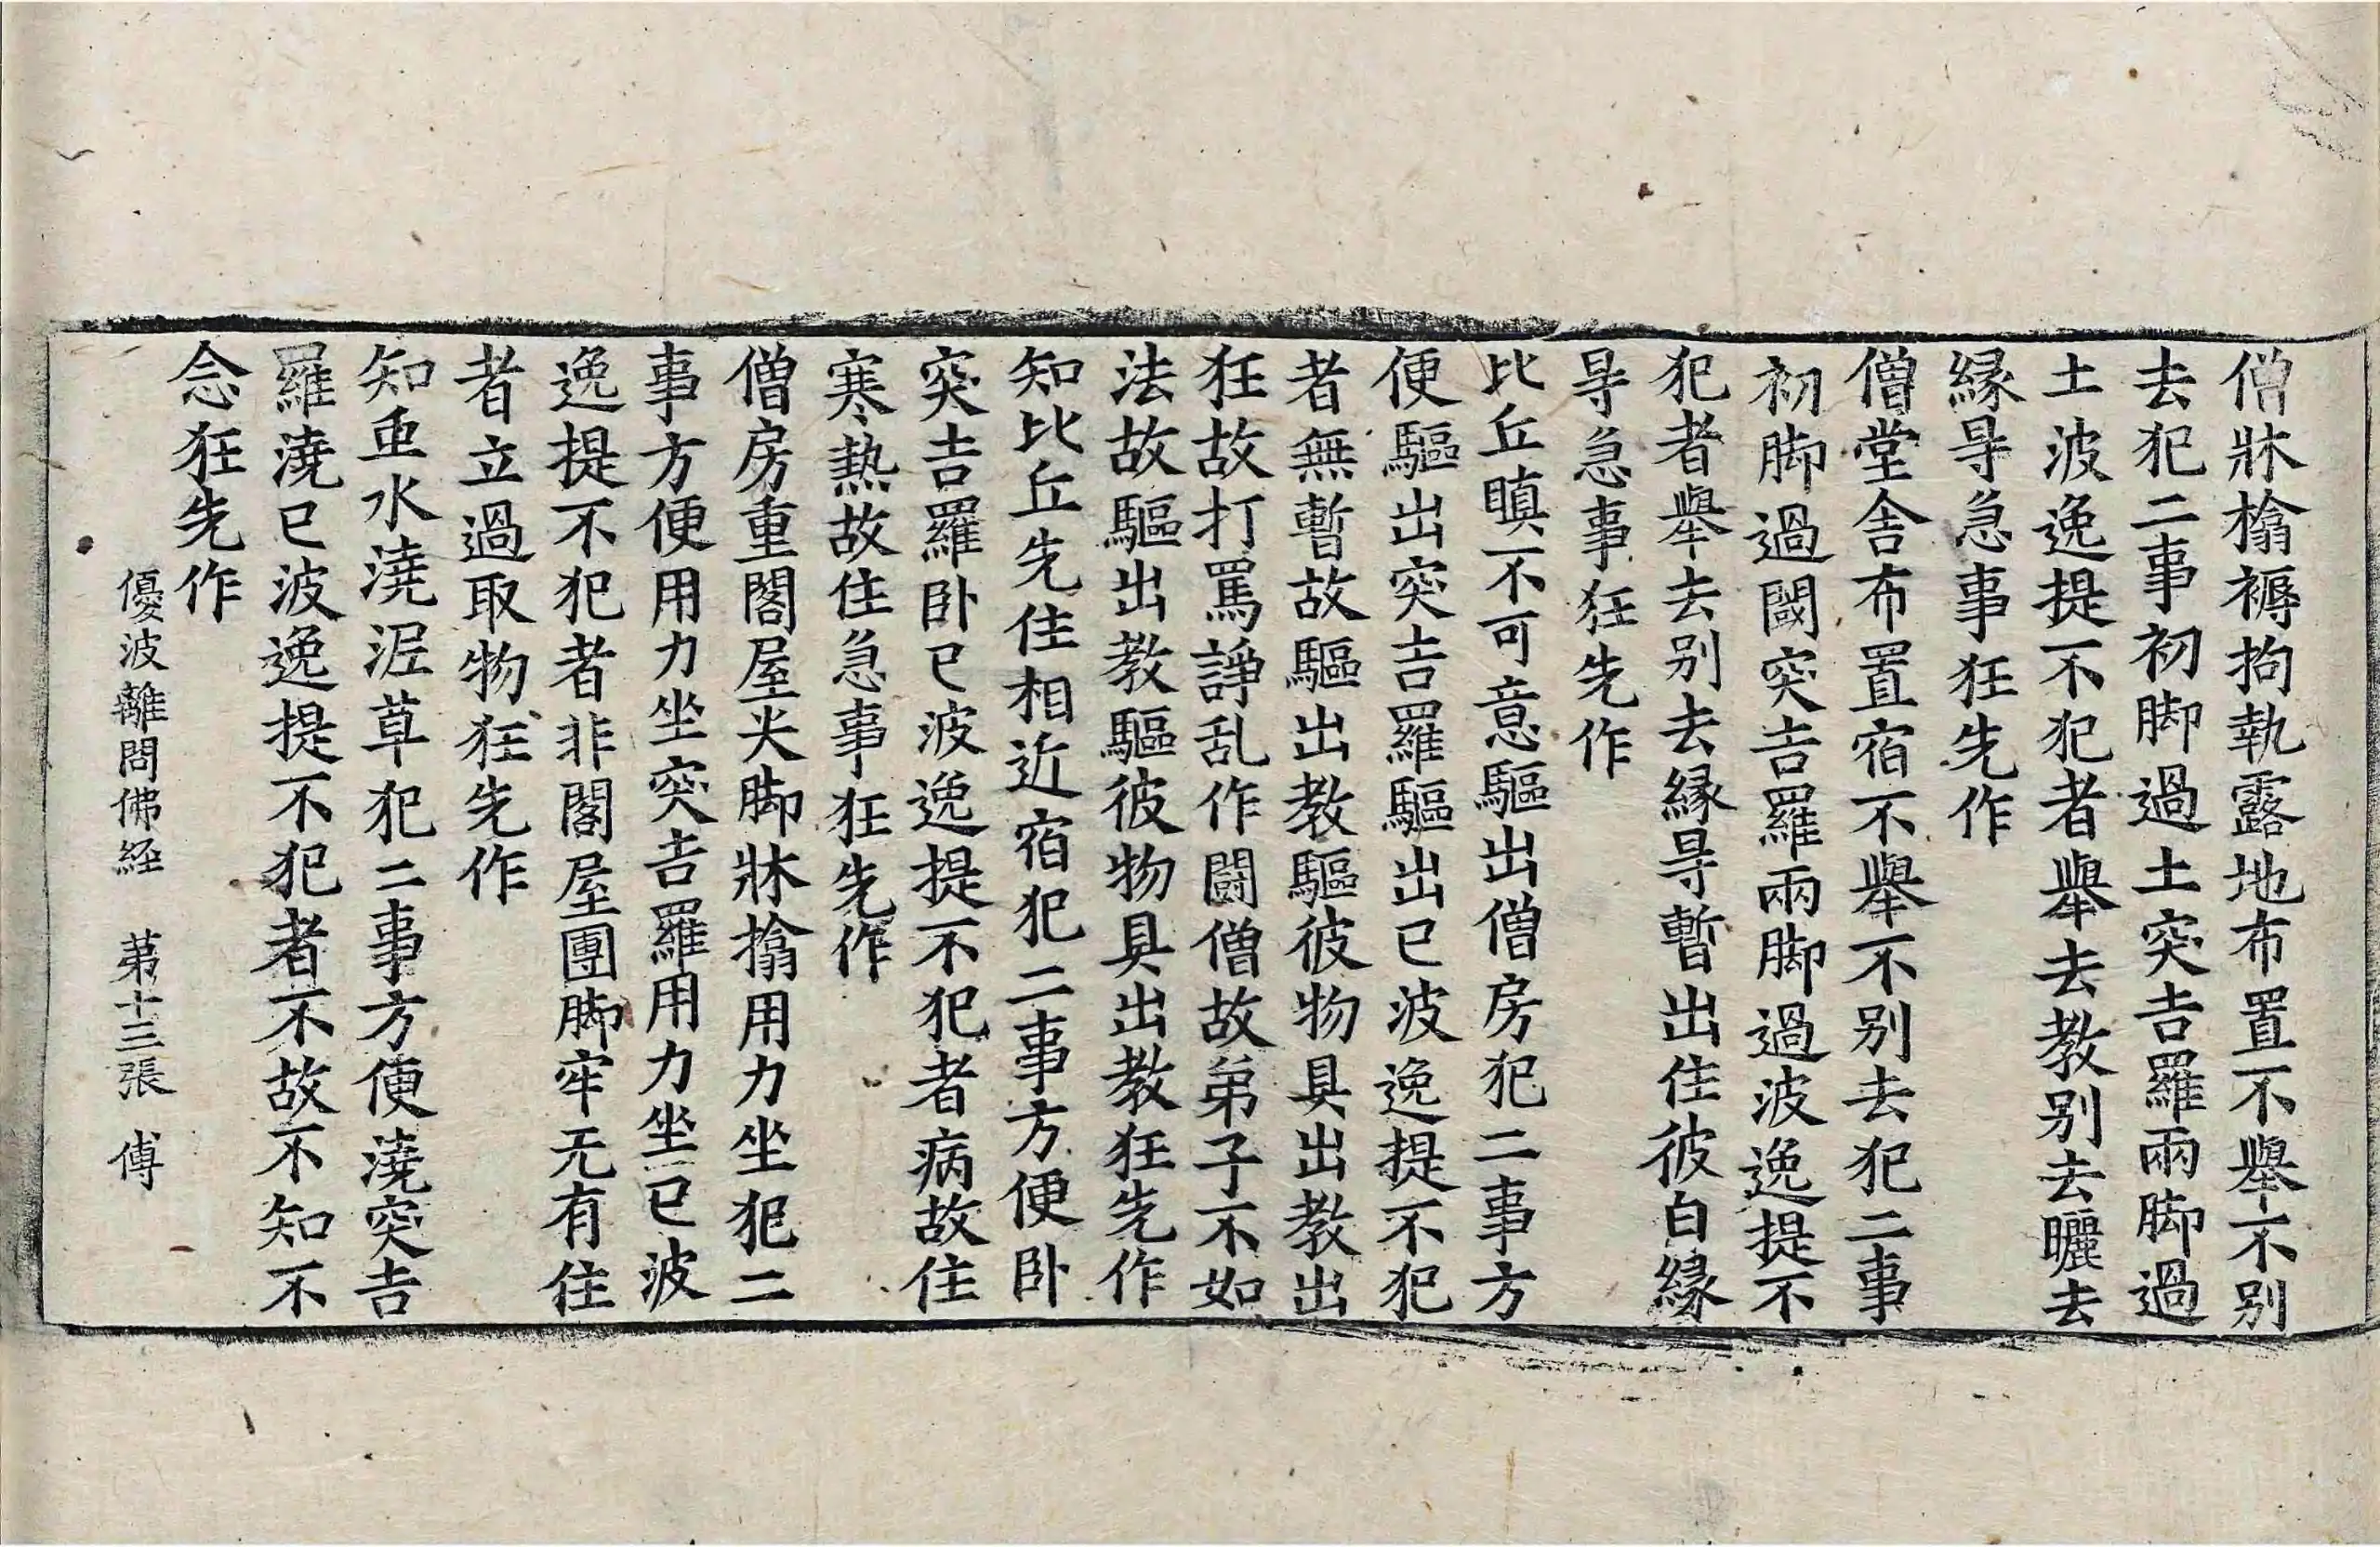 僧牀榻褥拘執露地布置不舉不別
去犯二事初脚過土突吉羅兩脚過
土波逸提不犯者舉去教別去曬去
縁㝵急事狂先作
僧堂舎布置宿不舉不別去犯二事
初脚過閾突吉羅兩脚過波逸提不
犯者舉去別去縁㝵暫出住彼白縁
㝵急事狂先作
比丘瞋不可意驅出僧房犯二事方
便驅出突吉羅驅出已波逸提不犯
者無暫故驅出教驅彼物具出教出
狂故打罵諍乱作鬪僧故弟子不如
法故驅出教驅彼物具出教狂先作
知比丘先住相近宿犯二事方便卧
突吉羅卧已波逸提不犯者病故住
寒熱故住急事狂先作
僧房重閣屋尖脚牀榻用力坐犯二
事方便用力坐突吉羅用力坐已波
逸提不犯者非閣屋團脚牢无有住
者立過取物狂先作
知虫水澆泥草犯二事方便澆突吉
羅澆已波逸提不犯者不故不知不
念狂先作
優波離問佛経 第十三張 傅